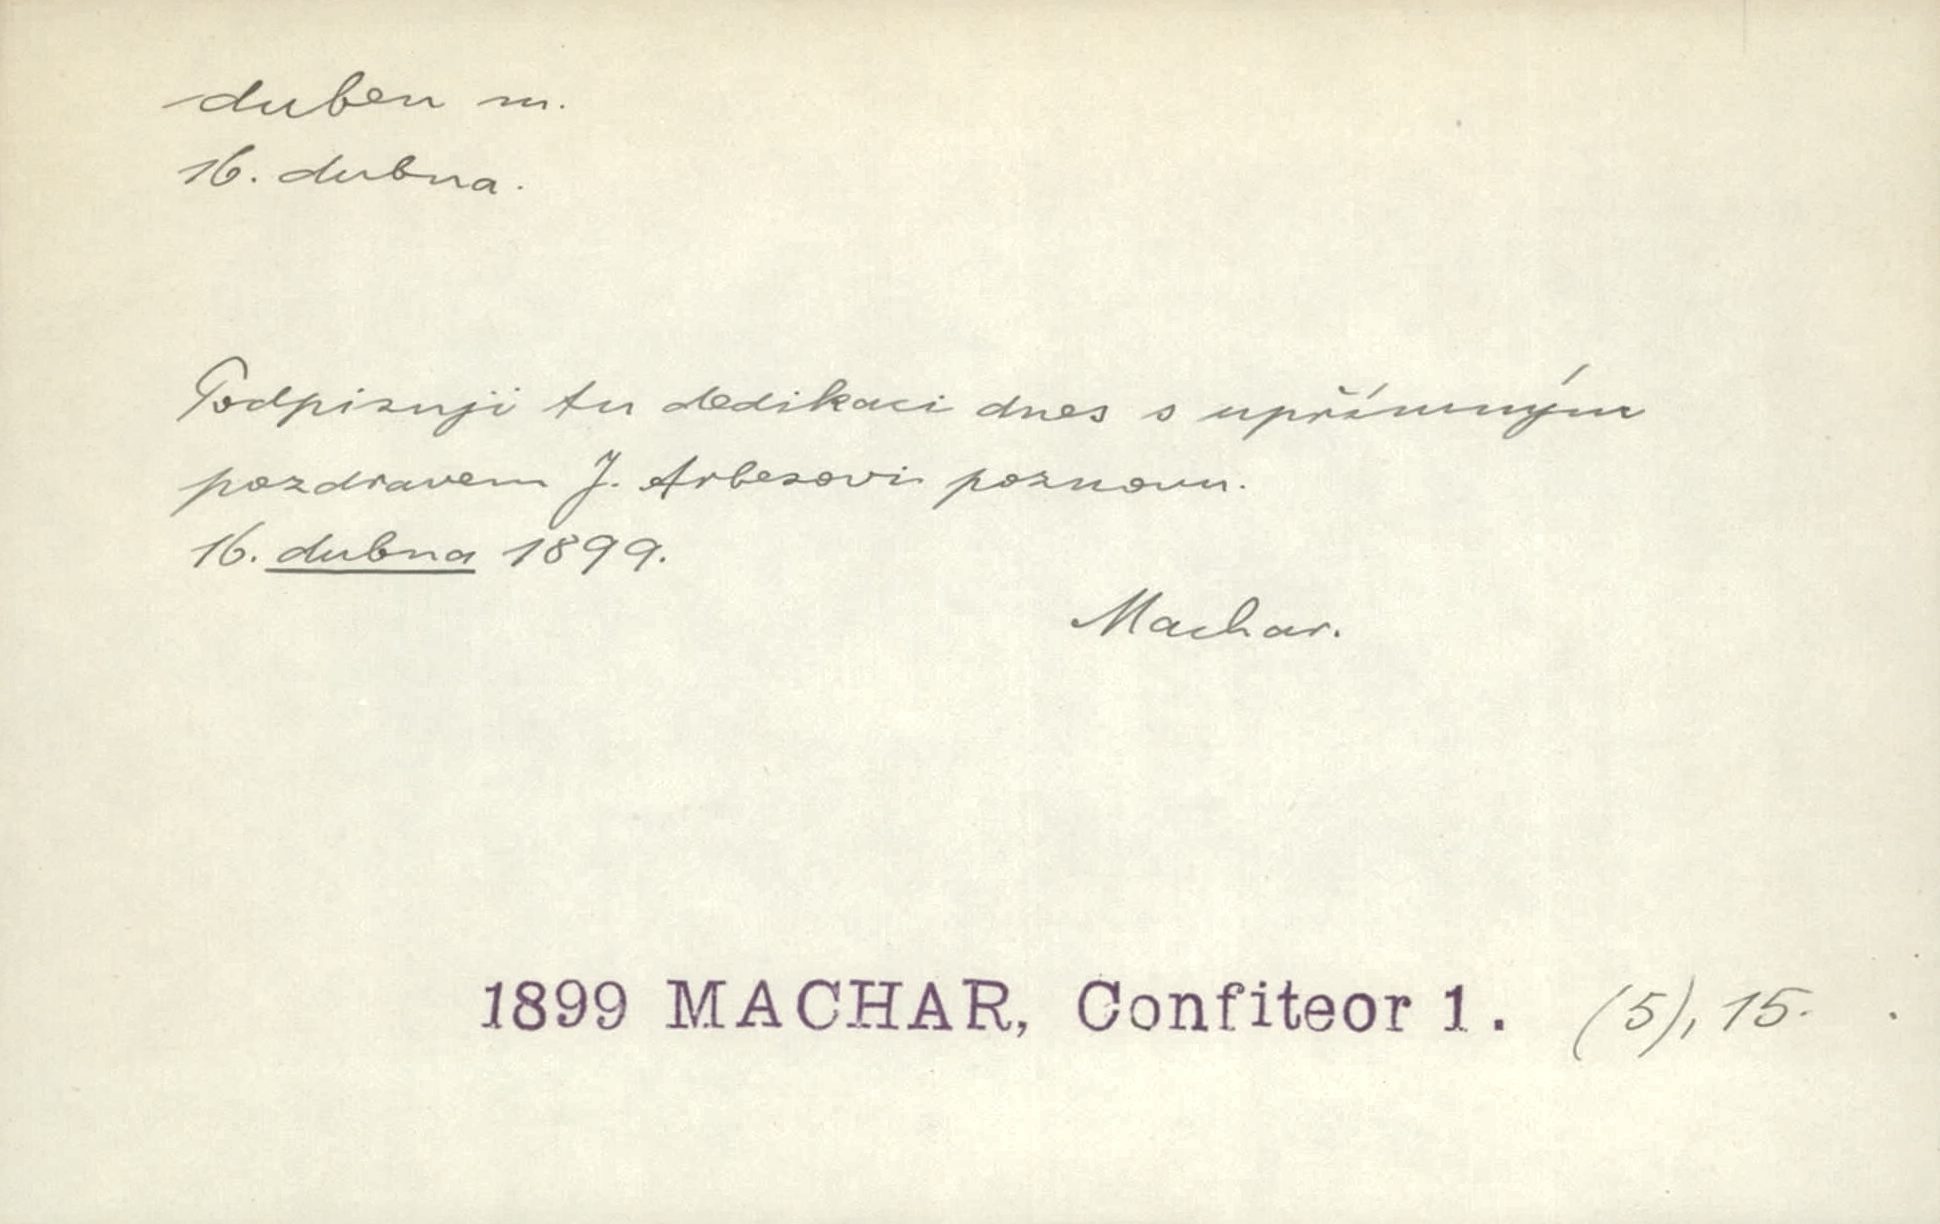 duben m.
16. dubna.
Podpisuji tu dedikaci dnes s upřímným
pozdravem J. Arbesovi poznovu.
16. dubna 1899.
Machar.
1899 MACHAR, Confiteor 1. (5), 15.